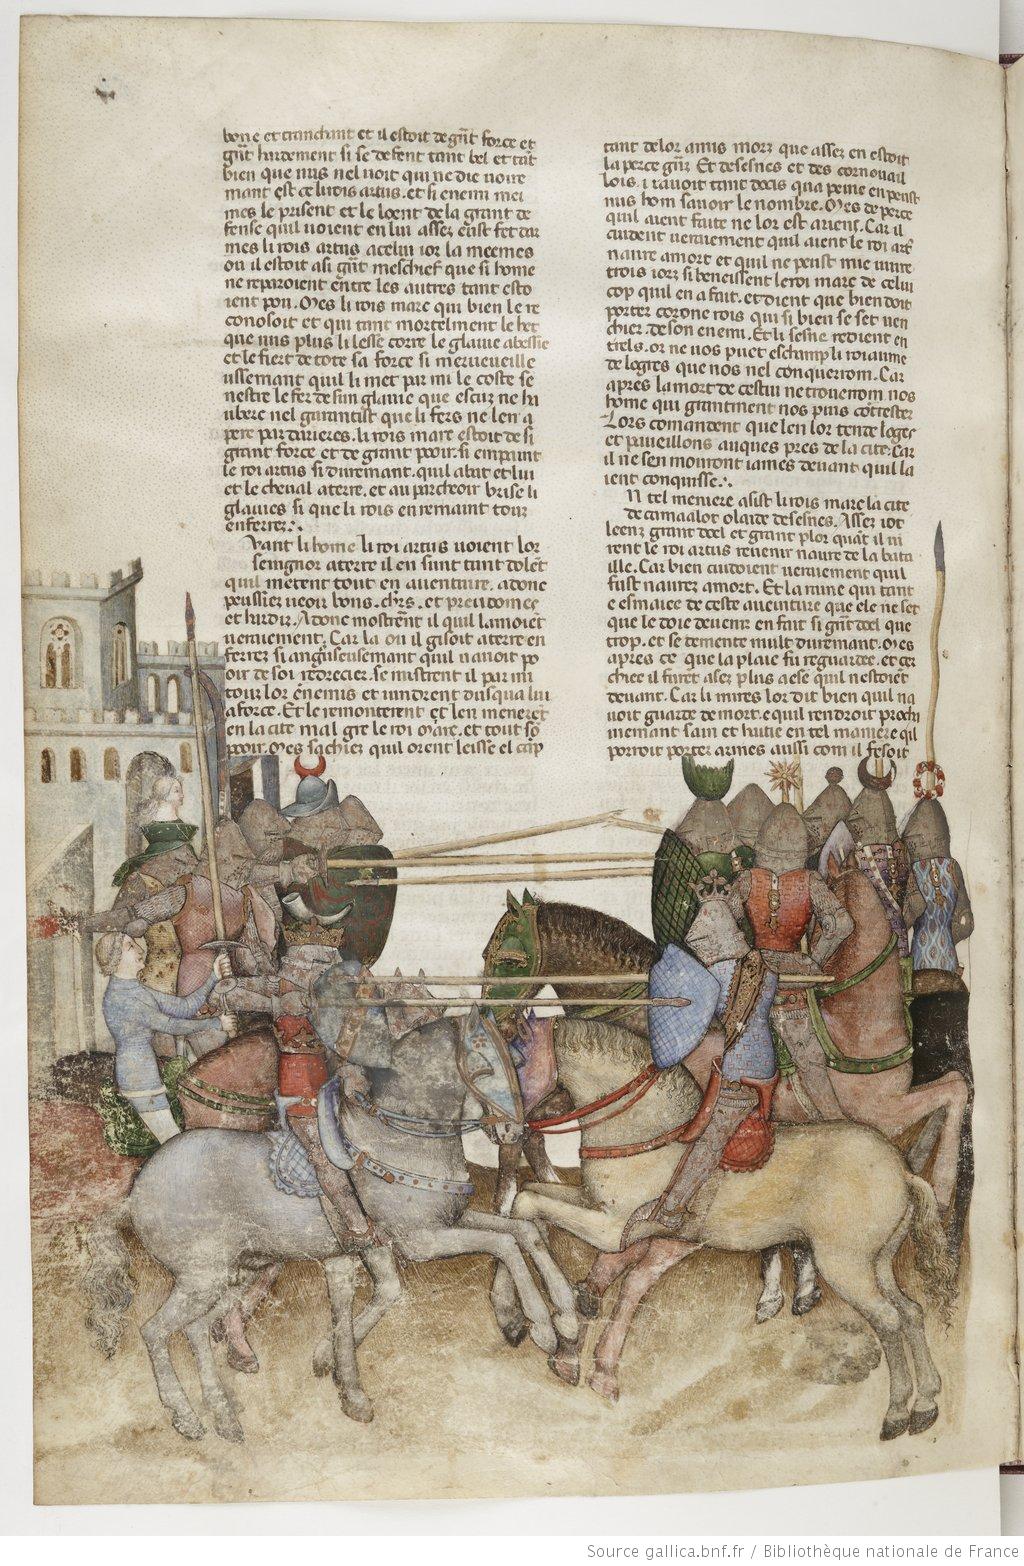 bone et tranchant et il estoit de gñt force et
gñt hardement si se defent tant bel et tãt
bien que nus nel uoit qui ne die uoire
mant est ce li rois artus. et si enemi mei
mes le prisent et le loent de la grant de
fense quil uoient en lui assez eust fet dar
mes li rois artus a celui ior la meemes
ou il estoit a si gñt meschief que si home
ne reparoient entre les autres tant esto
ient pou. Mes li rois marc qui bien le re
conosoit et qui tant mortelment le het
que nus plus li lesse corre le glaiue abessie
et le fiert de tote sa force si merueueille
ussemant quil li met par mi le coste se
nestre le fer de sun glaiue que escuz ne ha
ubere nel garantist que li fers ne len a
pere par darieres. li rois marc estoit de si
grant force et de grant pooir. si empaint
le roi artus si duremant. quil abat et lui
et le cheual a terre. et au parcheoir brise li
glaiues si que li rois en remaint touz
enferrez.
Quant li home li roi artus uoient lor
seignor a terre il en sunt tant dolẽt
quil metent tout en auenture. adonc
peussiez ueoir bons. chrs. et preudomes
et hardiz. Adonc mostrẽt il quil lamoiẽt
ueraiement. Car la ou il gisoit a terre en
ferrez si anguseusemant quil nauoit po
oir de soi redrecier. se mistrent il par mi
touz lor ẽnemis et uindrent dusqua lui
a force. Et le remonterent et len menerẽt
en la cite mal gre le roi marc. et tout sõ
pooir. Mes sachiez quil orent leisse el cãp
tant de lor amis morz que assez en estoit
la perce gñz. Et de sesnes et des cornouail
lois. i rauoit tant docis qua peine en peust
nus hom sauoir le nombre. Mes de perce
quil aient faite ne lor est a riens. Car il
cuident ueraiement quil aient le roi art
naure a mort et quil ne peust mie uiure
trois iorz si beneissent le roi marc de celui
cop quil en a fait. et dient que bien doit
porter corone rois qui si bien se set uen
chier. de son enemi. Et li sesne redient en
triels. or ne uos puet eschamp li roiaume
de logres que nos nel conquerrom. Car
apres la mort de cestui ne trouerrom nos
home qui grantment nos puis cõtrester
Lors comandent que len lor tende loges
et paueillons auques pres de la cite. Car
il ne sen mouront iames deuant quil la
ient conquisse.
N tel meniere asist li rois marc la cite
de camaalot o laide de sesnes. Assez iot
leenz grant doel et grant plor quãt il ui
rent le roi artus reuenir naure de la bata
ille. Car bien cuidoient ueraiement quil
fust naurez a mort. Et la raine qui tant
e esmaiee de ceste auenture que ele ne set
que le doie deuenir en fait si gñt doel que
trop. et se demente mult durement. Mes
apres ce que la plaie fu reguardee. et cer
chiee il furẽt asez plus a ese quil nestoiẽt
deuant. Car li mires lor dit bien quil na
uoit guarde de mort. e quil rendroit prochi
inemant sain et haitie en tel maniere qil
porroit porter armes aussi com il fesoit
Source gallica.bnf.fr / Bibliothèque nationale de France